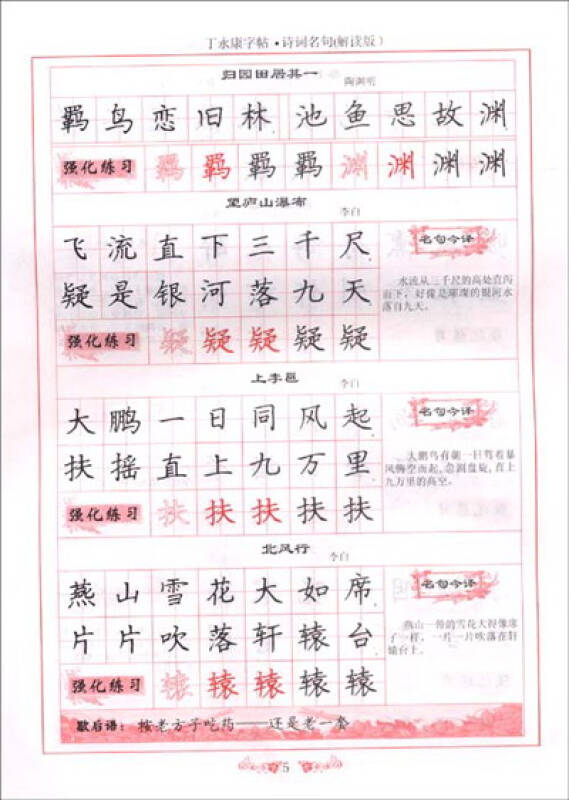 丁永康字帖·诗词名句(解读版)
归园田居其一 陶渊明
羁鸟恋旧林 池鱼思故渊
强化练习 羁羁羁羁渊渊渊渊
望庐山瀑布 李白
飞流直下三千尺
疑是银河落九天
强化练习 疑疑疑疑疑
名句今译
水流从三千尺的高处直泻
而下，好像是璀璨的银河水
落自九天。
上李邕 李白
大鹏一日同风起
扶摇直上九万里
强化练习 扶扶扶扶扶
名句今译
大鹏鸟有朝一日驾着暴
风腾空而起,急剧盘旋,直上
九万里的高空。
北风行 李白
燕山雪花大如席
片片吹落轩辕台
强化练习 辕辕辕辕辕
名句今译
燕山一带的雪花大得像席
子一样，一片一片吹落在轩
辕台上。
歇后语：按老方子吃药——还是老一套
5